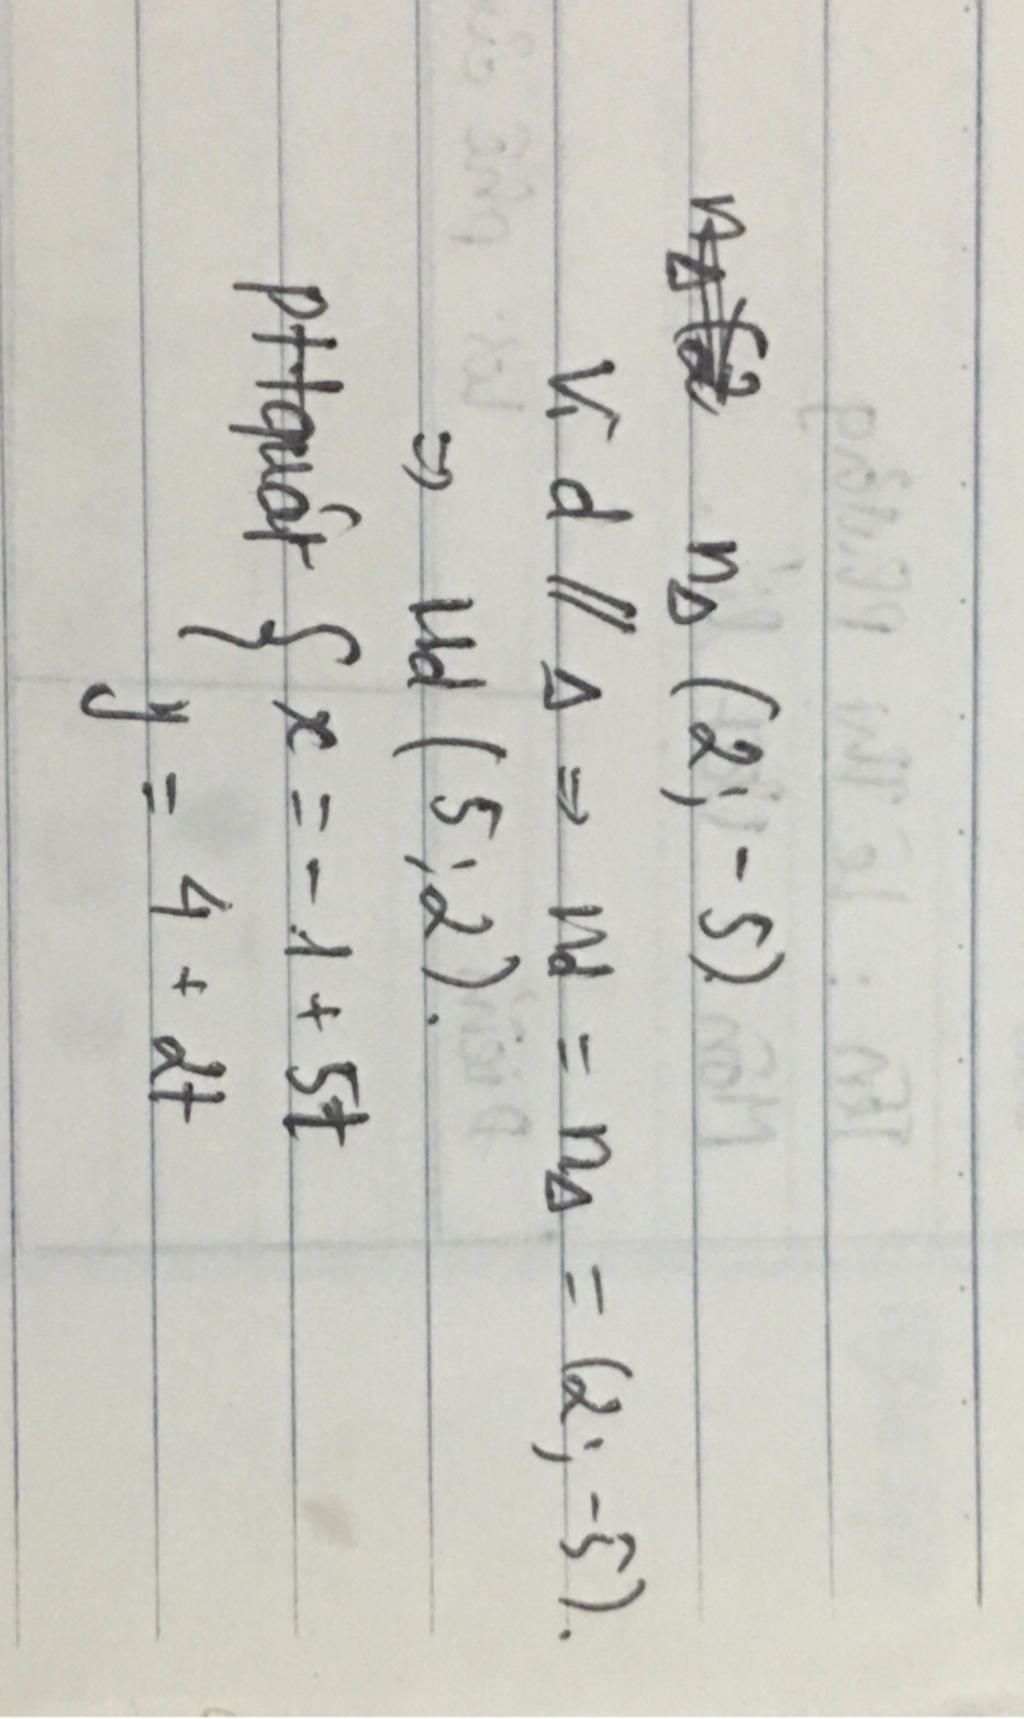 n∆ (2; -5)
Vì d // ∆ => nd = n∆ = (2; -5).
=> ud (5; 2).
ptquát { x = -1 + 5t
y = 4 + 2t